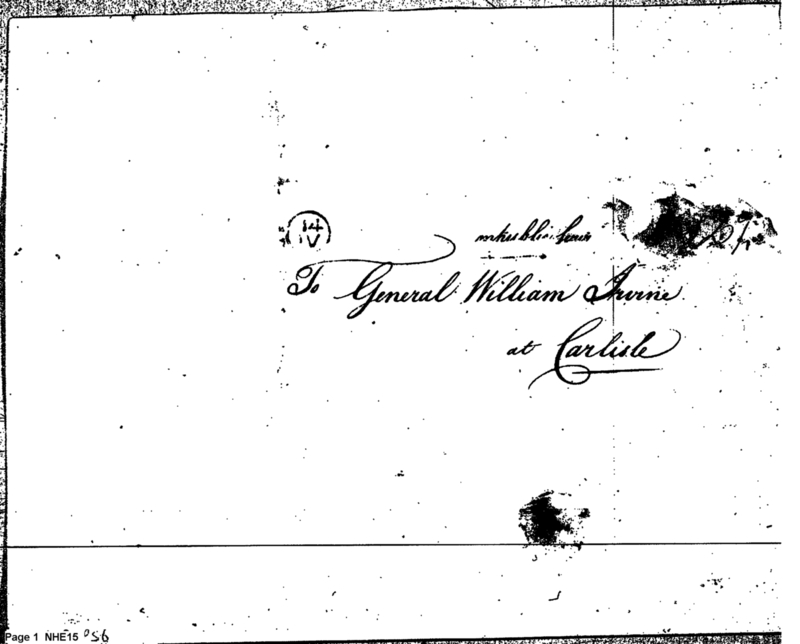 14
IV
To General William Irvine
at Carlisle
Page 1 NHE15 056